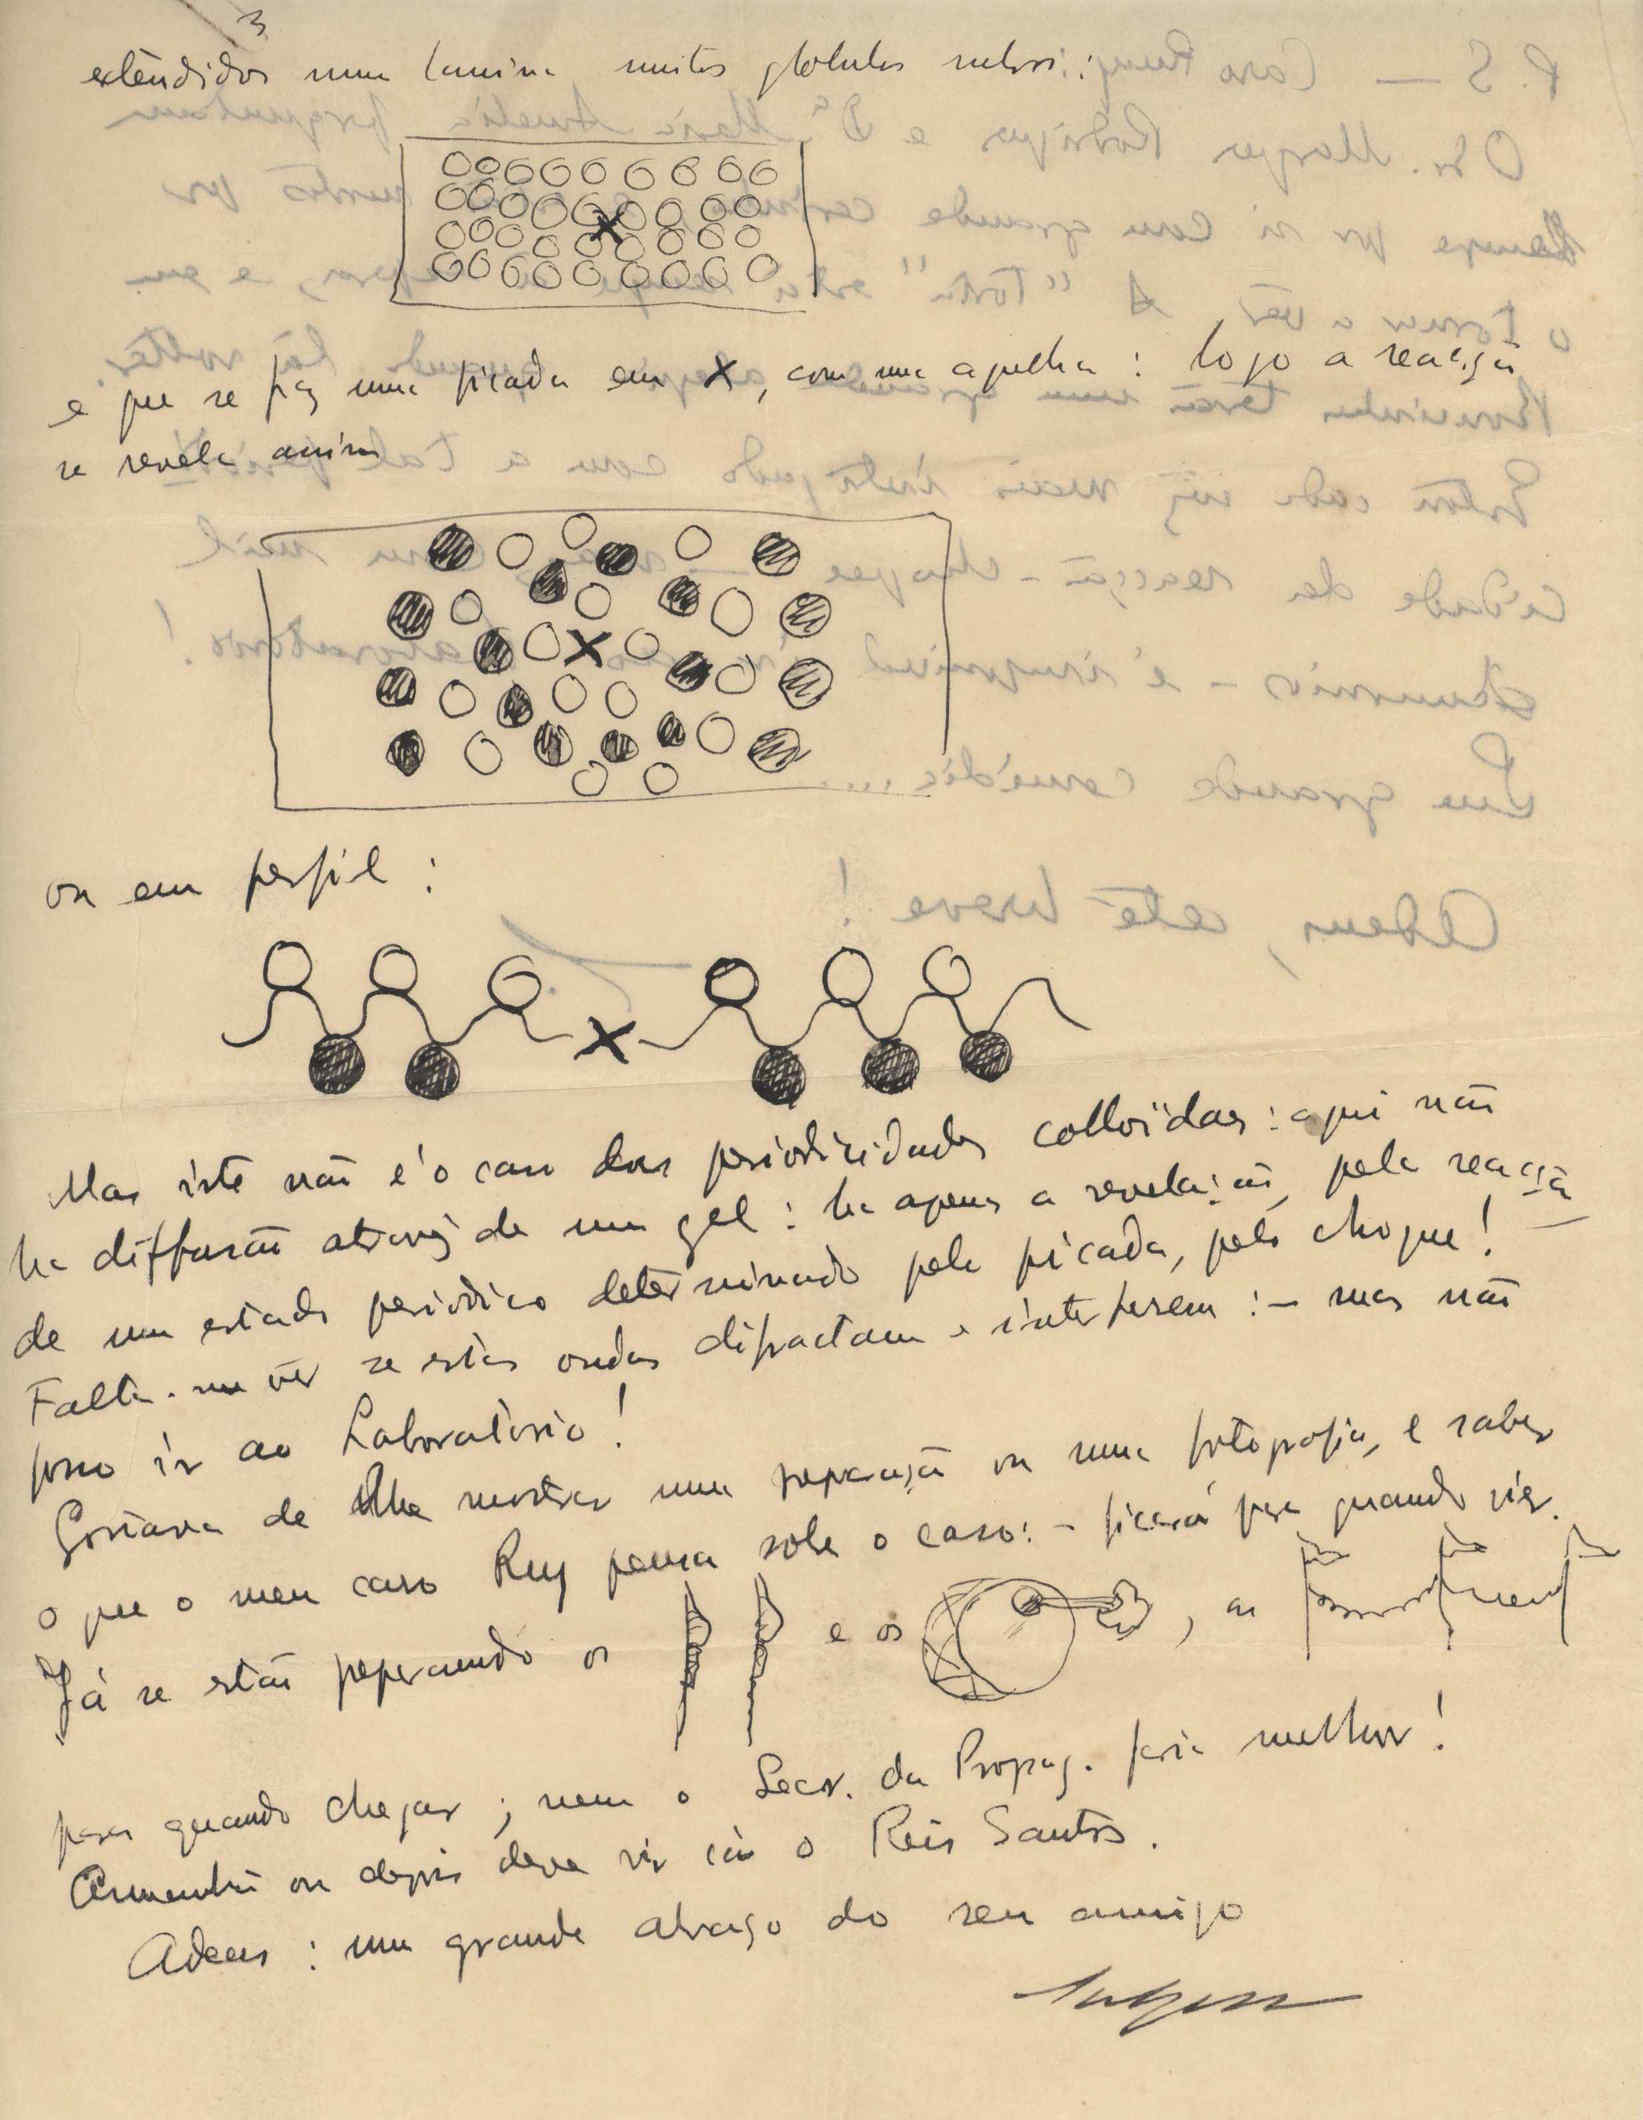 3
extendidos numa lamina muitos globulos rubros:
e que se faz uma picada em X, com uma agulha: logo a reacção
se revela assim
ou em perfil:
Mas isto não é o caso das periodicidades colloïdaes: aqui não
ha diffusão atravez de um gel: ha apenas a revelação, pela reacção
de um estado periodico determinado pela picada, pelo choque!
Falta-me vêr se estas ondas difractam e interferem: – mas não
posso ir ao Laboratorio!
Gostava de lhe mostrar uma preparação ou uma fotografia, e saber
o que o meu caro Ruy pensa sobre o caso: – ficará para quando vier.
Já se estão preparando os e os , as
para quando chegar; nem o Secr. da Propag. faria melhor!
Amanhã ou depois deve vir cá o Reis Santos.
Adeus: um grande abraço do seu amigo